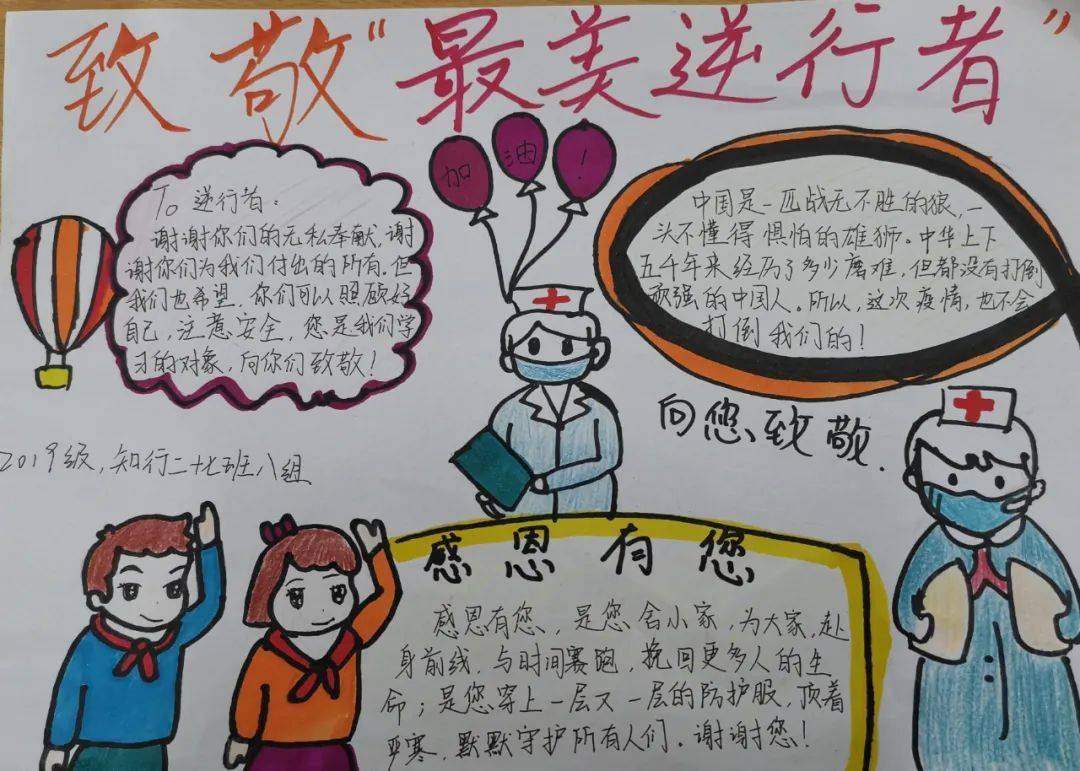 致敬“最美逆行者”
加油！
To 逆行者：
谢谢你们的无私奉献，谢
谢你们为我们付出的所有。但
我们也希望，你们可以照顾好
自己，注意安全，您是我们学
习的对象，向你们致敬！
中国是一匹战无不胜的狼，一
头不懂得惧怕的雄狮。中华上下
五千年来经历了多少磨难，但都没有打倒
顽强的中国人。所以，这次疫情，也不会
打倒我们的！
向您致敬.
2019级，知行二十七班八组
感恩有您
感恩有您，是您舍小家，为大家，赴
身前线，与时间赛跑，挽回更多人的生
命；是您穿上一层又一层的防护服，顶着
严寒，默默守护所有人们。谢谢您！